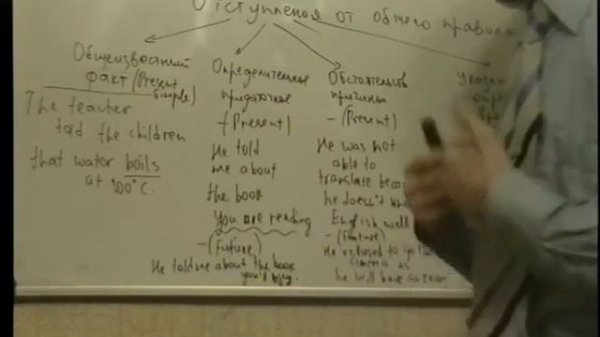 Отступления от общего правила
Общеизвестный
факт (Present
Simple)
The teacher
told the children
that water boils
at 100°C.
Определительное
придаточное
- (Present)
He told
me about
the book
you are reading
- (Future)
He told me about the book
you'll buy.
Обстоятельств
причины
- (Present)
He was not
able to
translate
he doesn't
English well
- (Future)
He refused to go
cinema as
he will have an exam